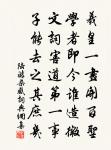 羲皇一畫開百聖
學者即今誰造微
文詞害道第一事
子能去之其庶幾
陸游雜感詞典網集